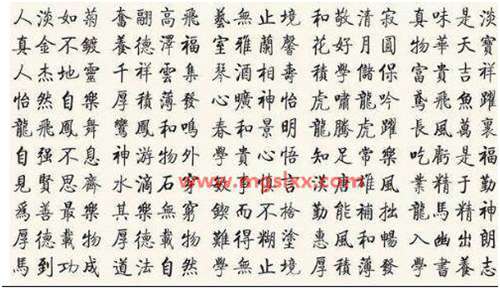 人淡如菊 奮翮高飛 藝無止境 和敬清寂 真味是淡
真金不鍍 養德澤福 室雅蘭馨 花好月圓 物華天寶
人杰地靈 千祥雲集 琴酒相壽 積學儲保 富貴吉祥
怡然自樂 厚積薄發 心曠神怡 虎嘯龍吟 鳶飛魚躍
龍飛鳳舞 鸞鳳和鳴 春和景明 龍騰虎躍 長風萬裏
自强不息 神游物外 學貴心悟 知足常樂 吃虧是福
見賢思齊 水滴石穿 漢唐雄風 業精于勤
爲善最樂 其樂無窮 鍥而不捨 勤能補拙 龍馬精神
厚德載物 厚德載物 難得糊塗 惠風和暢 入幽出朗
馬到功成 道法自然 學無止境 厚積薄發 學書養志
www.mgslxx.com